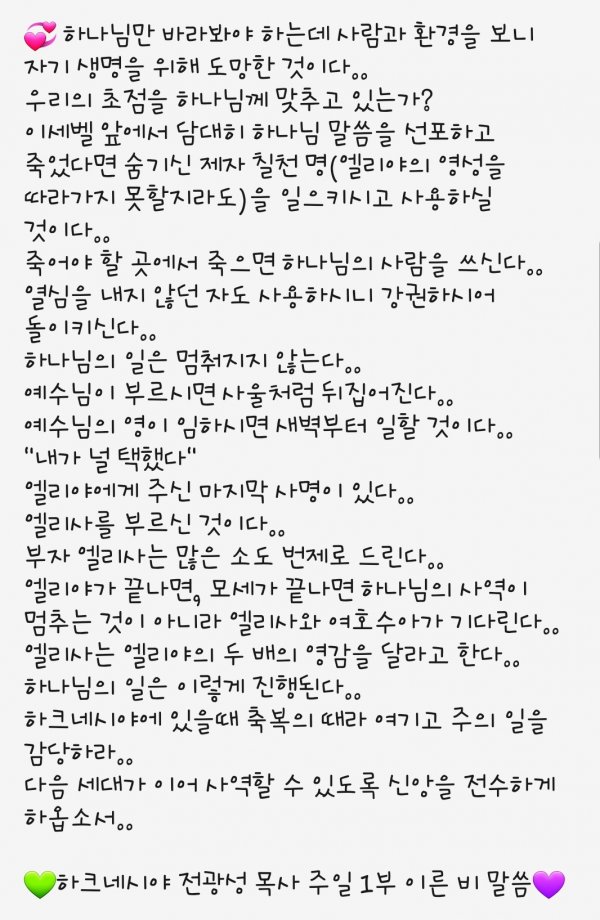 💞하나님만 바라봐야 하는데 사람과 환경을 보니
자기 생명을 위해 도망한 것이다..
우리의 초점을 하나님께 맞추고 있는가?
이세벨 앞에서 담대히 하나님 말씀을 선포하고
죽었다면 숨기신 제자 칠천 명(엘리야의 영성을
따라가지 못할지라도)을 일으키시고 사용하실
것이다..
죽어야 할 곳에서 죽으면 하나님의 사람을 쓰신다..
열심을 내지 않던 자도 사용하시니 강권하시어
돌이키신다..
하나님의 일은 멈춰지지 않는다..
예수님이 부르시면 사울처럼 뒤집어진다..
예수님의 영이 임하시면 새벽부터 일할 것이다..
"내가 널 택했다"
엘리야에게 주신 마지막 사명이 있다..
엘리사를 부르신 것이다..
부자 엘리사는 많은 소도 번제로 드린다..
엘리야가 끝나면, 모세가 끝나면 하나님의 사역이
멈추는 것이 아니라 엘리사와 여호수아가 기다린다..
엘리사는 엘리야의 두 배의 영감을 달라고 한다..
하나님의 일은 이렇게 진행된다..
하크네시야에 있을때 축복의 때라 여기고 주의 일을
감당하라..
다음 세대가 이어 사역할 수 있도록 신앙을 전수하게
하옵소서..
💚하크네시야 전광성 목사 주일 1부 이른 비 말씀💜